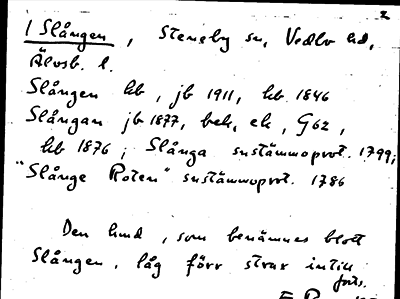 2
1 Slången, Steneby sn, Vedbo hd,
Älvsb. l.
Slången hb, jb 1911, hb 1846
Slångan jb 1877, bek, ek, G62,
hb 1876; Slånga sustämmoprot. 1799;
"Slånge Roten" sustämmoprot. 1786
Den lund, som benämnes blott
Slången, låg förr strax intill
forts.